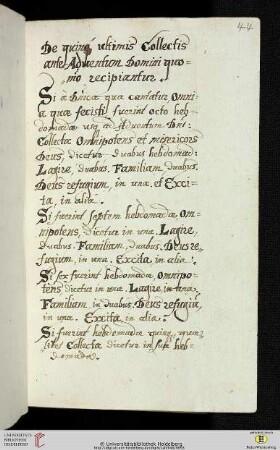 44
De quinq; ultimis Collectis
ante Adventum Domini quo=
modo recipiantur.
Si à Dnica qua cantatur Omni=
a quæ fecisti fuerint octo heb=
domadæ usq; ad Adventum Dni:
Collecta Omnipotens et misericors
Deus, dicetur duabus hebdomad:
Largire, duabus. Familiam duabus.
Deus refugium, in una. et Exci=
ta, in alia.
Si fuerint septem hebdomadæ, Om=
nipotens, dicetur in una. Largire,
duabus. Familiam, duabus. Deus re=
fugium, in una. Excita in alia.
Si sex fuerint hebdomadæ Omnipo=
tens dicetur in una. Largire in una.
Familiam in duabus. Deus refugiū
in una. Excita in alia.
Si fuerint hebdomadæ quinq;, quæ=
libet Collecta dicetur in sua heb=
domada.
UNIVERSITÄTS-
BIBLIOTHEK
HEIDELBERG
© Universitätsbibliothek Heidelberg